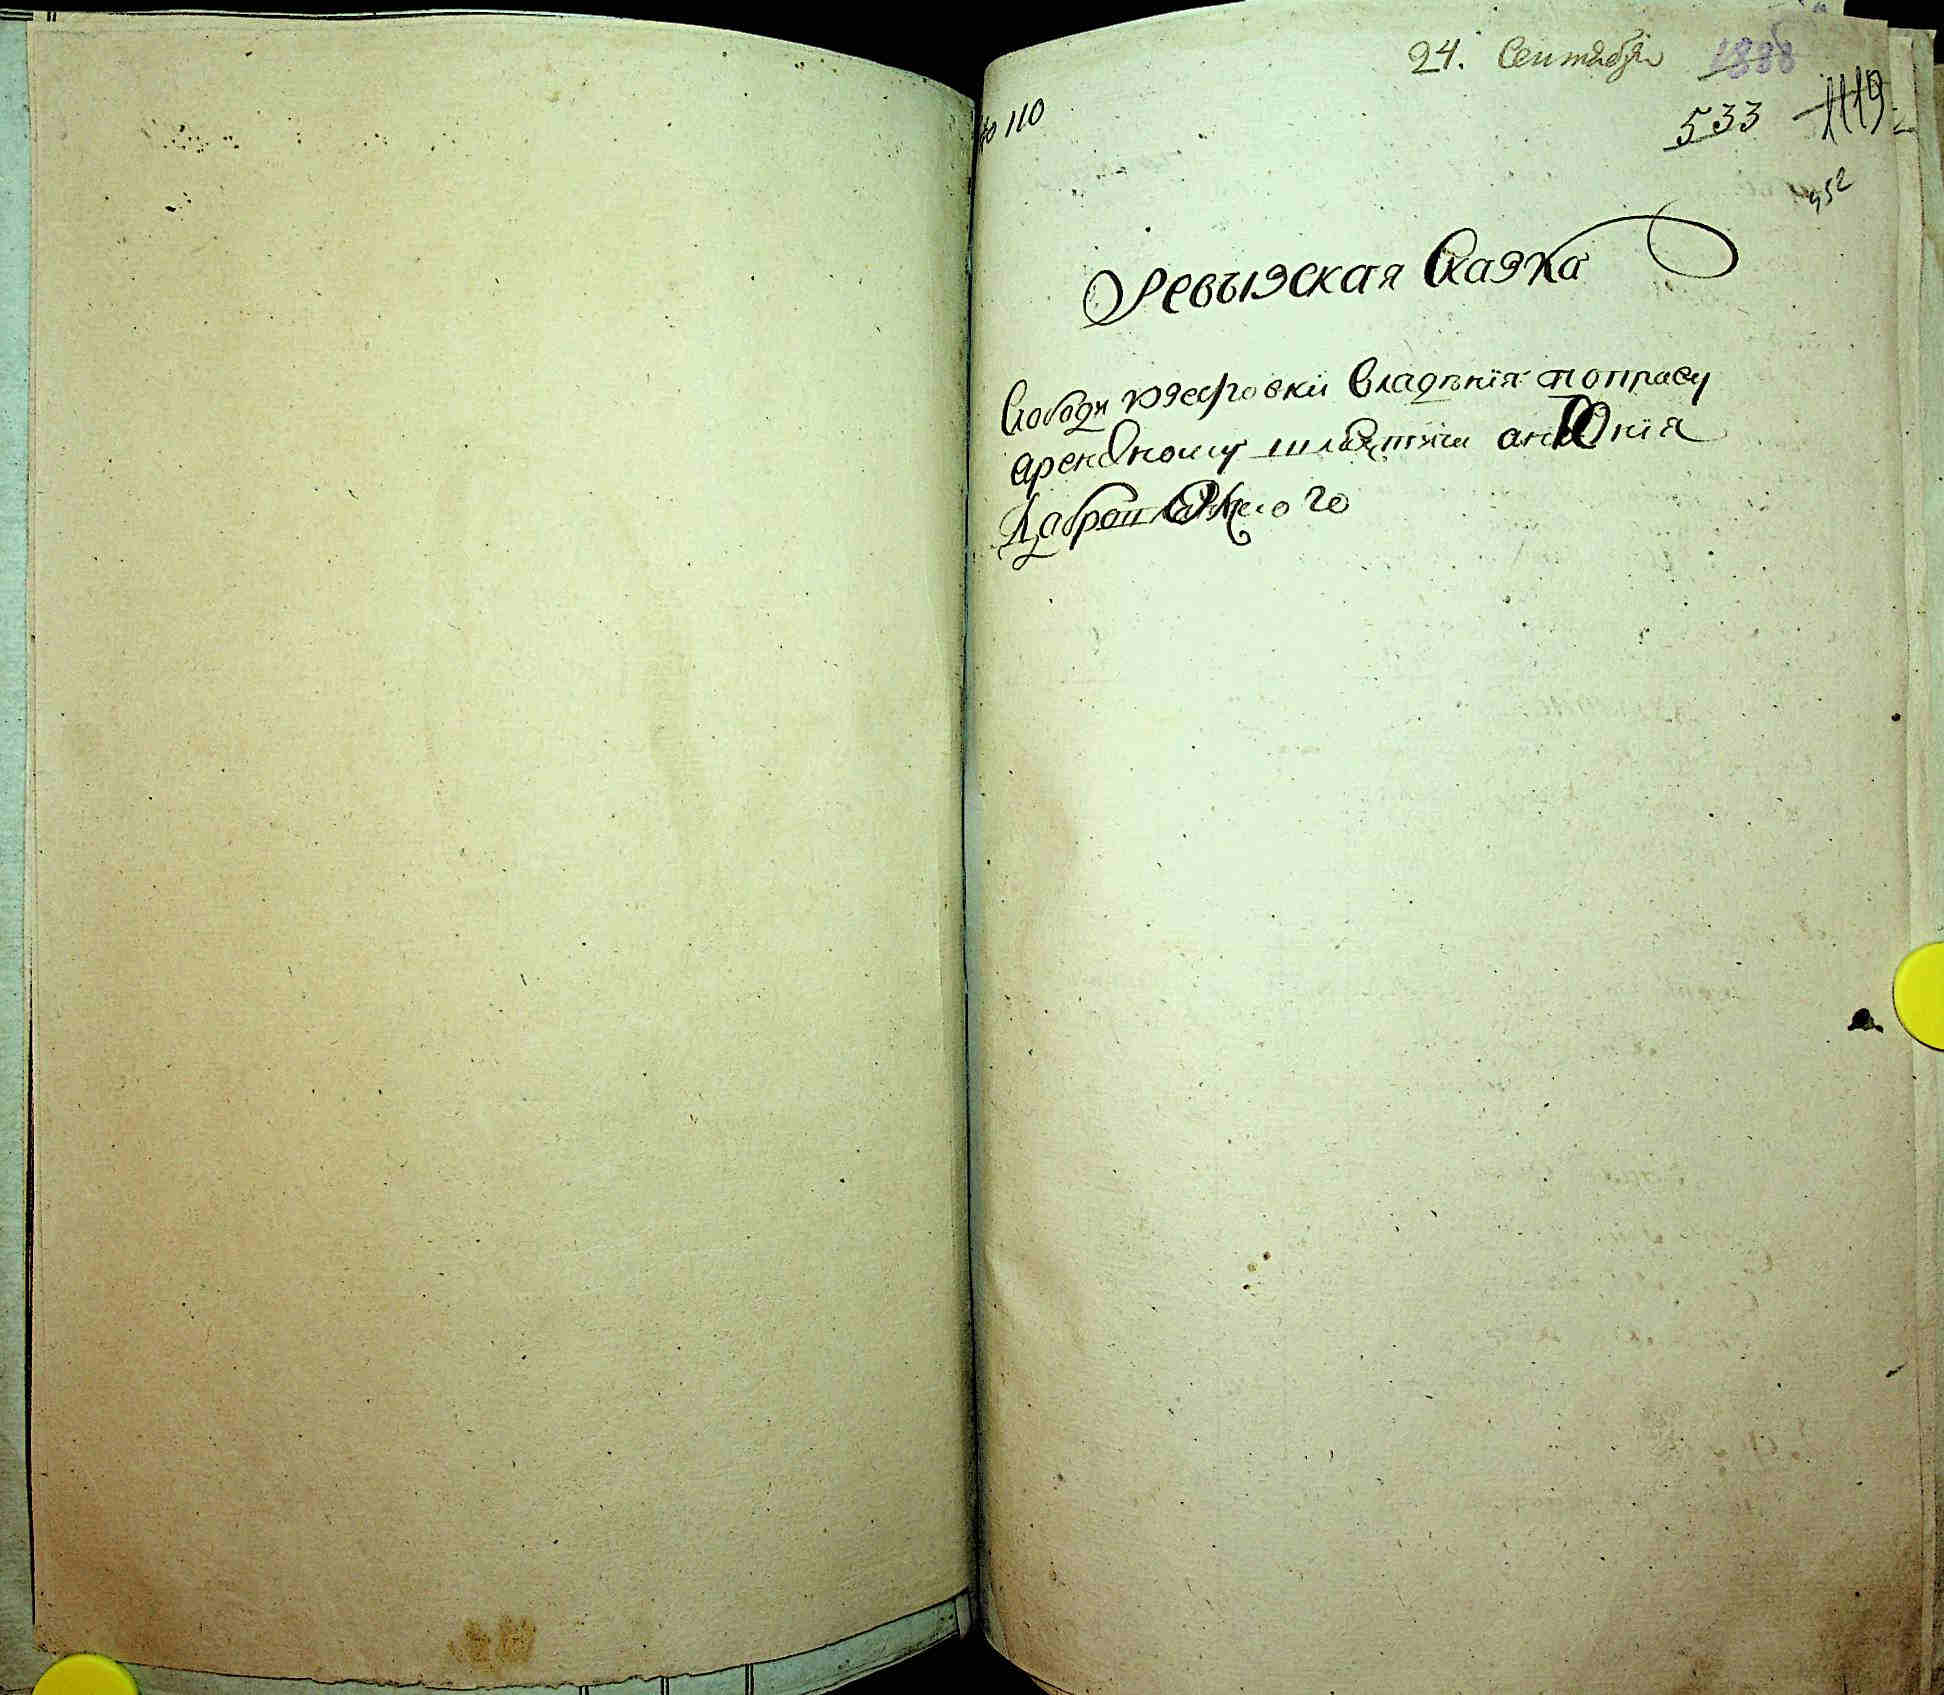 24. Сентября 1888
№ 110
533 1119
952
Ревызская Сказка
Слободы Юзефовки Владѣнія попрасу
арендному шляхтича анТОнія
Добра го